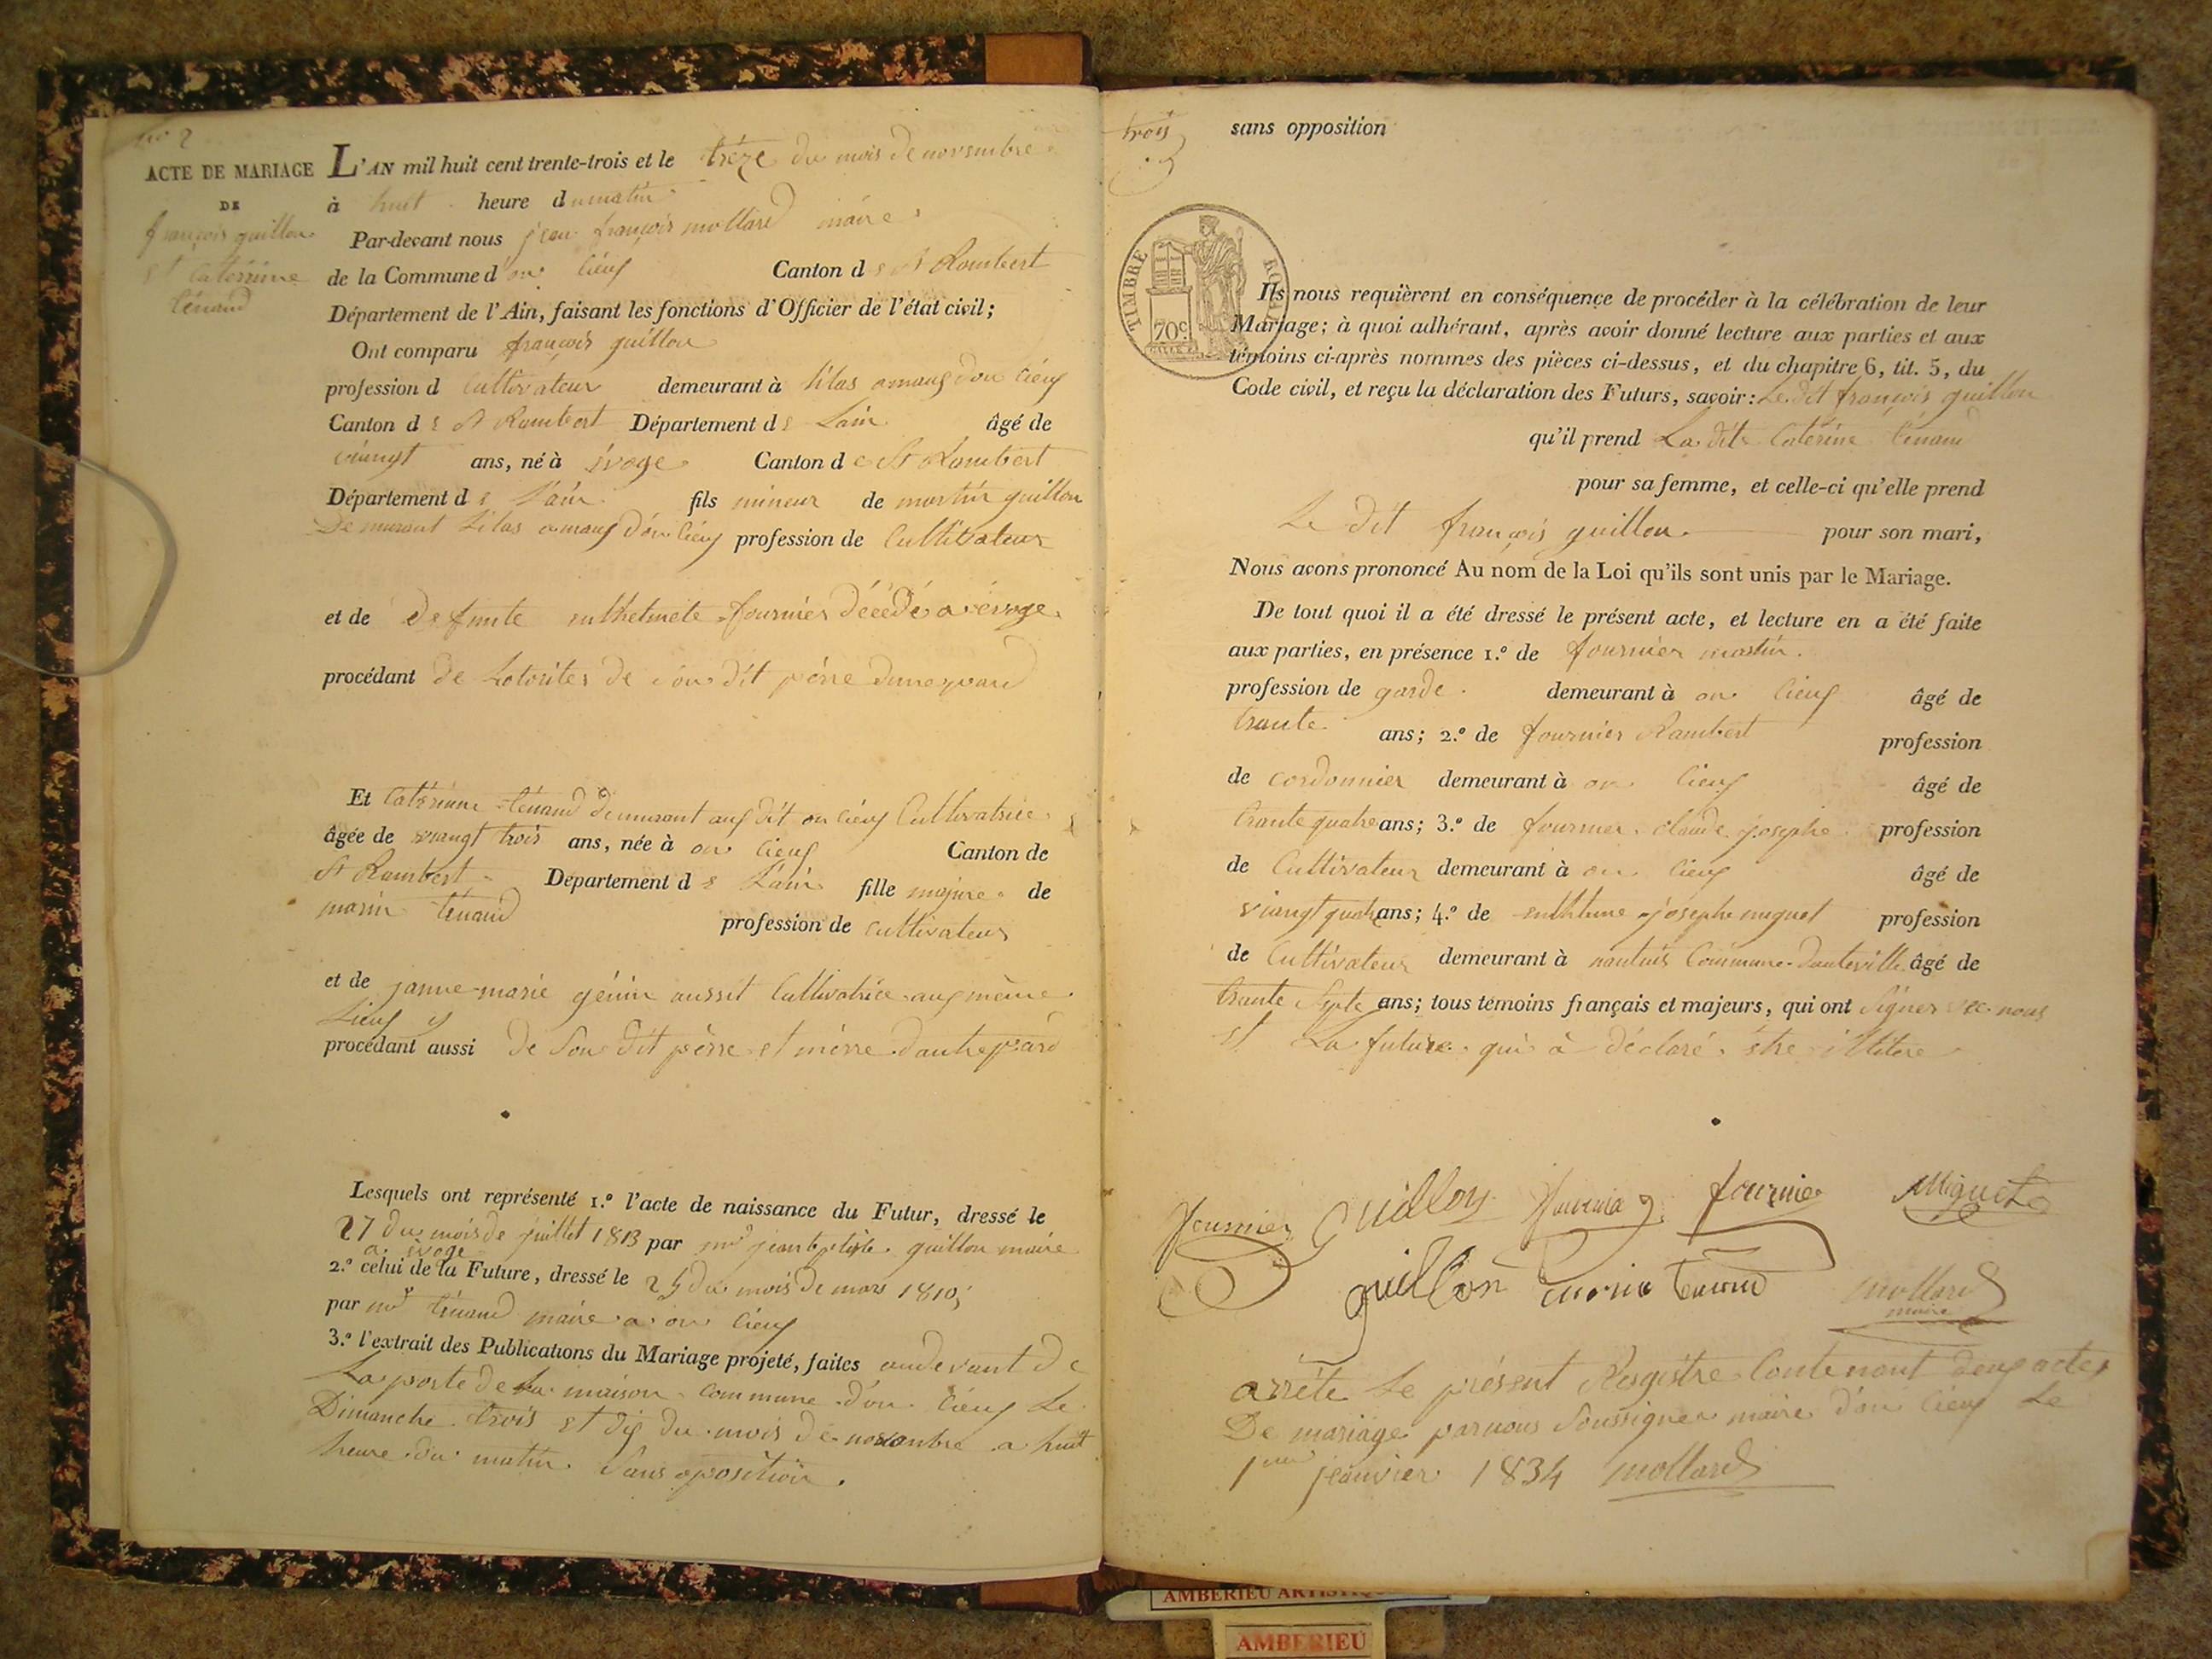 no 2
ACTE DE MARIAGE
DE
françois guillon
et Catérinne
ténand
L'AN mil huit cent trente-trois et le trèze du mois de novembre
à huit heure du matin
Par-devant nous jean françois mollard maire
de la Commune d'on cieux Canton de St Rambert
Département de l'Ain, faisant les fonctions d'Officier de l'état civil;
Ont comparu françois guillon
profession d Cultivateur demeurant à don cieux
Canton de St Rambert Département de Lain âgé de
viangt ans, né à évoge Canton de St Rambert
Département de l'ain fils mineur de martin guillon
Demurant d'on cieux profession de Cultivateur
et de defunte fournier décédé a évoge
procédant de Lotorites de son dit pérre
Et Catérinne ténand demurant aux dit on cieux Cultivatrice
âgée de viangt trois ans, née à on cieux Canton de
St Rambert Département de L'ain fille majure de
marin ténand profession de cultivateur
et de janne-marie génin aussit Cultivatrice aux même
Lieux
procédant aussi de Son dit pèrre et mèrre d'autre pard
Lesquels ont représenté 1.º l'acte de naissance du Futur, dressé le
27 du mois de juillet 1813 par mr jean guillon maire
a évoge
2.º celui de la Future, dressé le 25 du mois de mars 1810
par mr ténand maire a on cieux
3.º l'extrait des Publications du Mariage projeté, faites audevant de
La porte de la maison commune d'on cieux Le
Dimanche trois et dix du mois de novembre a huit
heure du matin Sans oposition.
trois
sans opposition
TIMBRE ROYAL
70c.
Ils nous requièrent en conséquence de procéder à la célébration de leur
Mariage; à quoi adhérant, après avoir donné lecture aux parties et aux
témoins ci-après nommés des pièces ci-dessus, et du chapitre 6, tit. 5, du
Code civil, et reçu la déclaration des Futurs, savoir: Le dit françois guillon
qu'il prend La dite Catérine ténand
pour sa femme, et celle-ci qu'elle prend
Le dit françois guillon pour son mari,
Nous avons prononcé Au nom de la Loi qu'ils sont unis par le Mariage.
De tout quoi il a été dressé le présent acte, et lecture en a été faite
aux parties, en présence 1.º de fournier martin.
profession de garde demeurant à on cieux âgé de
trante ans; 2.º de fournier Rambert profession
de cordonnier demeurant à on cieux âgé de
trante quatre ans; 3.º de fournier claude josephe profession
de Cultivateur demeurant à on cieux âgé de
viangt quatre ans; 4.º de josephe miguet profession
de Cultivateur demeurant à Commune dauteville âgé de
trante Septe ans; tous témoins français et majeurs, qui ont Signer avec nous
et La future qui à déclaré être illitere
fournier Guillon fournier fournier Miguet
guillon marie tenand mollard
maire
arrête Le présent Registre Contenant deux actes
De mariage par nous Soussigner maire d'on cieux Le
1er jeanvier 1834 mollard
AMBERIEU
AMBERIEU